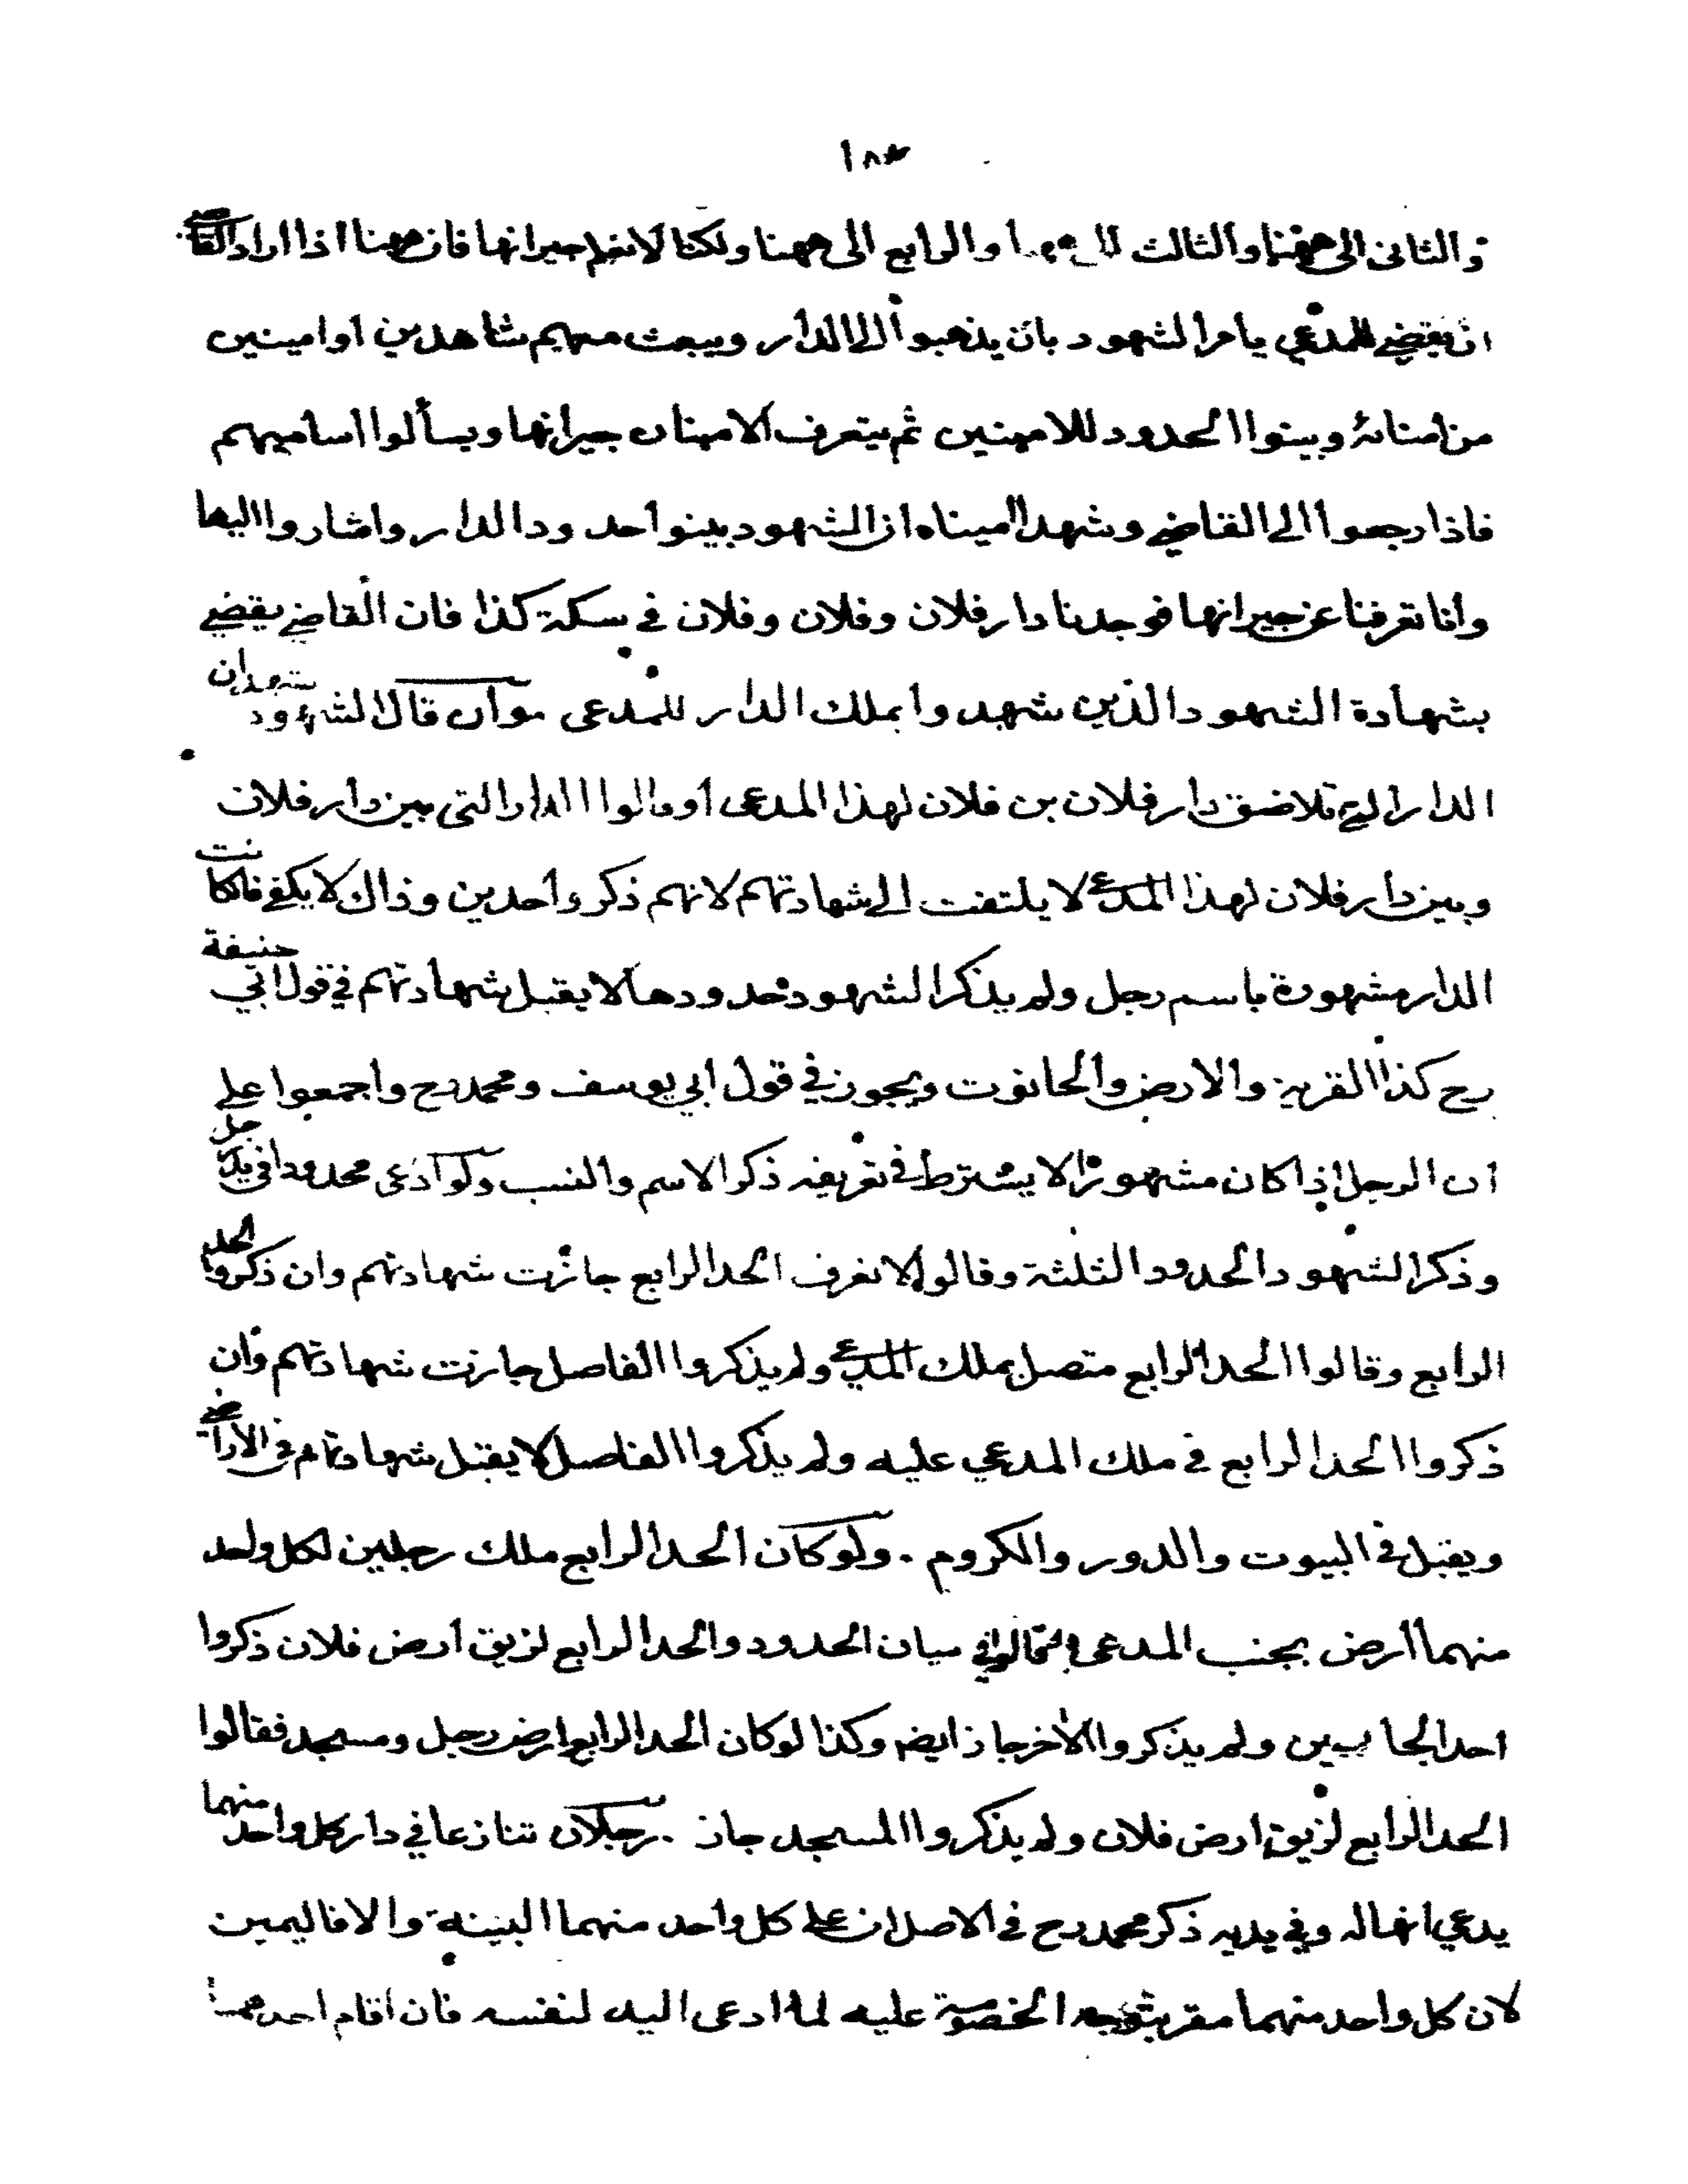 والثانى الى ههنا والثالث والرابع الى ههنا ولكنا لا نعلم جيرانها فان ههنا اذا اراد القاضے
ان يقضے للمدعي يامر الشهود بان يذهبوا الى الدار ويبعث معهم شاهدين او امينين
من امنائه وبينوا الحدود للامينين ثم يتعرف الامينان جيرانها ويسألوا اساميهم
فاذا رجعوا الى القاضے وشهد اميناه ان الشهود بينوا حدود الدار واشاروا اليها
وانا تعرفنا عن جيرانها فوجدنا دار فلان وفلان وفلان في سكة كذا فان القاضے يقضے
بشهادة الشهود الذين شهدوا بملك الدار للمدعى وان قال الشهود نشهد ان
الدار التي تلاصق دار فلان بن فلان لهذا المدعى او قالوا الدار التى بين دار فلان
وبين دار فلان لهذا المدعے لا يلتفت الى شهادتهم لانهم ذكروا حدين وذاك لا يكفے فان كانت
الدار مشهورة باسم رجل ولم يذكر الشهود حدودها لا يقبل شهادتهم في قول ابي حنيفة
رح كذا القرية والارض والحانوت ويجوز في قول ابي يوسف ومحمد رح واجمعوا على
ان الرجل اذا كان مشهورا لا يشترط في تعريفه ذكر الاسم والنسب ولو ادعى محدودا في يد رجل
وذكر الشهود الحدود الثلثة وقالوا لا نعرف الحد الرابع جازت شهادتهم وان ذكروا الحد
الرابع وقالوا الحد الرابع متصل بملك المدعے ولم يذكروا الفاصل جازت شهادتهم وان
ذكروا الحد الرابع في ملك المدعي عليه ولم يذكروا الفاصل لا يقبل شهادتهم في الاراضے
ويقبل في البيوت والدور والكروم . ولو كان الحد الرابع ملك رجلين لكل واحد
منهما ارض بجنب المدعى فقالوا في بيان الحدود والحد الرابع لزيق ارض فلان ذكروا
احد الجانبين ولم يذكروا الاخر جاز ايضا وكذا لو كان الحد الرابع ارض رجل ومسجد فقالوا
الحد الرابع لزيق ارض فلان ولم يذكروا المسجد جاز . رجلان تنازعا في دار كل واحد منهما
يدعي انها له وفي يديه ذكر محمد رح في الاصل ان على كل واحد منهما البينة والا فاليمين
لان كل واحد منهما مقر بتوجه الخصومة عليه لما ادعى اليد لنفسه فان اقام احدهما